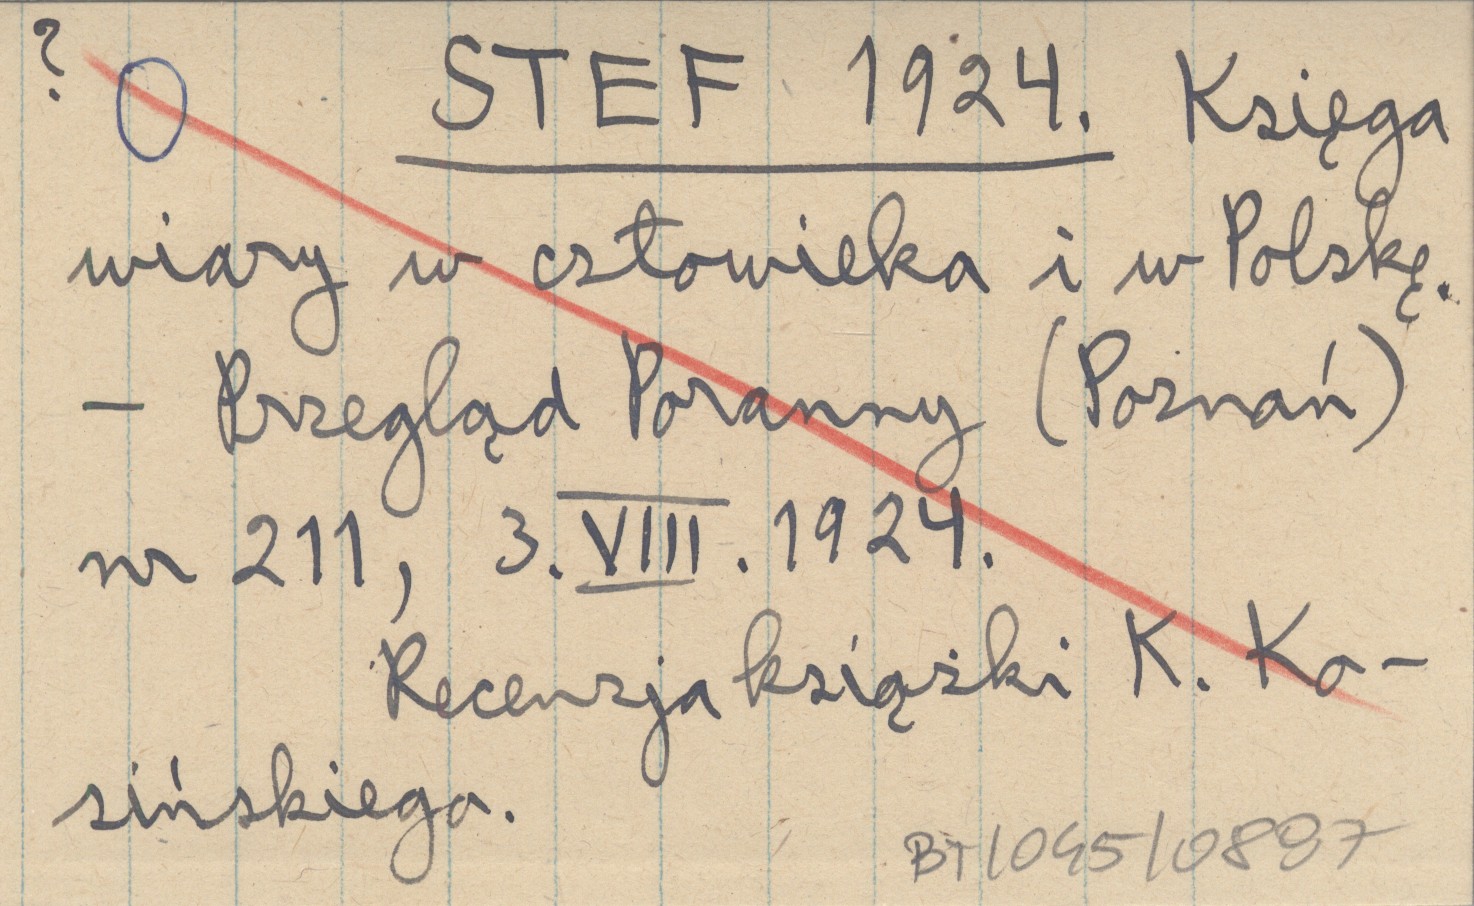 ? STEF 1924. Księga
wiary w człowieka i w Polskę.
- Przegląd Poranny (Poznań)
nr 211, 3.VIII.1924.
Recenzja książki K. Ko-
sińskiego.
BT/045/0887